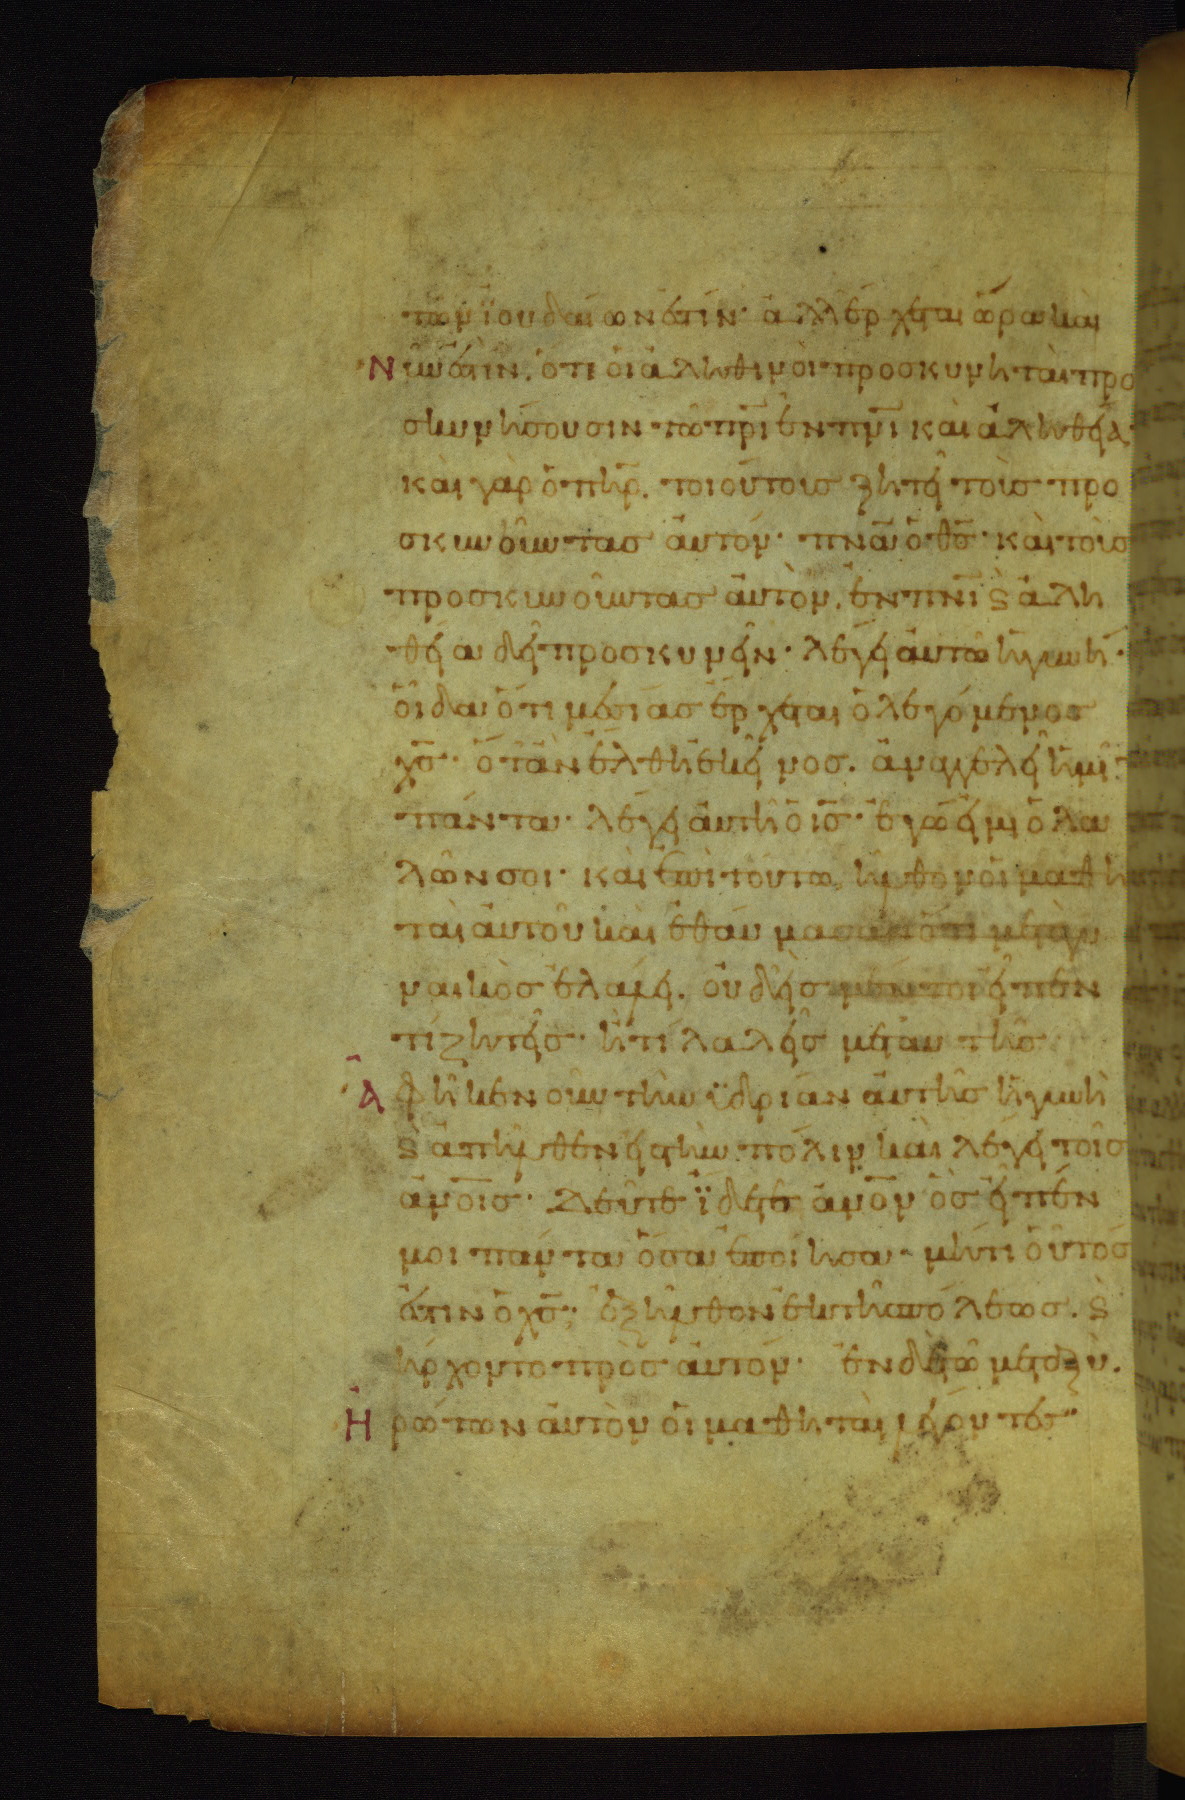 τῶν ϊουδαίων ἐστίν· ἀλλ ἔρχεται ὥρα καὶ
Νῦν ἐστιν. ὅτι οἱ ἀληθινοὶ προσκυνηταὶ προ
σκυνήσουσιν τῶ πρι ἐν πνι καὶ ἀληθεία·
καὶ γὰρ ὁ πηρ. τοιούτοισ ζητεῖ τοὺσ προ
σκυνοῦντασ αὐτόν· πνα ὁ θσ· καὶ τοὺσ
προσκυνοῦντασ αὐτὸν. ἐν πνι ϗ ἀλη
θεία δεῖ προσκυνεῖν· λέγει αὐτῶ ἡ γυνή·
οἶδα ὅτι μεσίασ ἔρχεται ὁ λεγόμενοσ
χσ· ὅταν ἔλθη ἐκεῖνοσ. ἀναγγελεῖ ἡμῖν
πάντα· λέγει αὐτῆ ὁ ισ· ἐγώ εἰμι ὁ λα
λῶν σοι· καὶ ἐπὶ τούτω ἦλθον οἱ μαθη
ταὶ αὐτοῦ καὶ ἐθαύμασαν ὅτι μετὰ γυ
ναικὸσ ἐλάλει. οὐδεὶσ μέντοι εἶπεν
τί ζητεῖσ· ἢ τί λαλεῖσ μετ αὐτῆσ
Ἀφῆκεν οὖν τὴν ϋδρίαν αὐτῆσ ἡ γυνὴ
ϗ ἀπῆλθεν εἰσ τὴν πόλιν καὶ λέγει τοῖσ
ἀνοισ· Δεῦτε ϊδετε ἀνον ὃσ εἶπέν
μοι πάντα ὅσα ἐποίησα· μήτι οὗτόσ
ἐστιν ὁ χσ; ἐξῆλθον ἐκ τῆσ πόλεωσ. ϗ
ἤρχοντο πρὸσ αὐτόν· ἐν δὲ τῶ μεταξὺ.
Ἠρώτων αὐτὸν οἱ μαθηταὶ λέγοντεσ